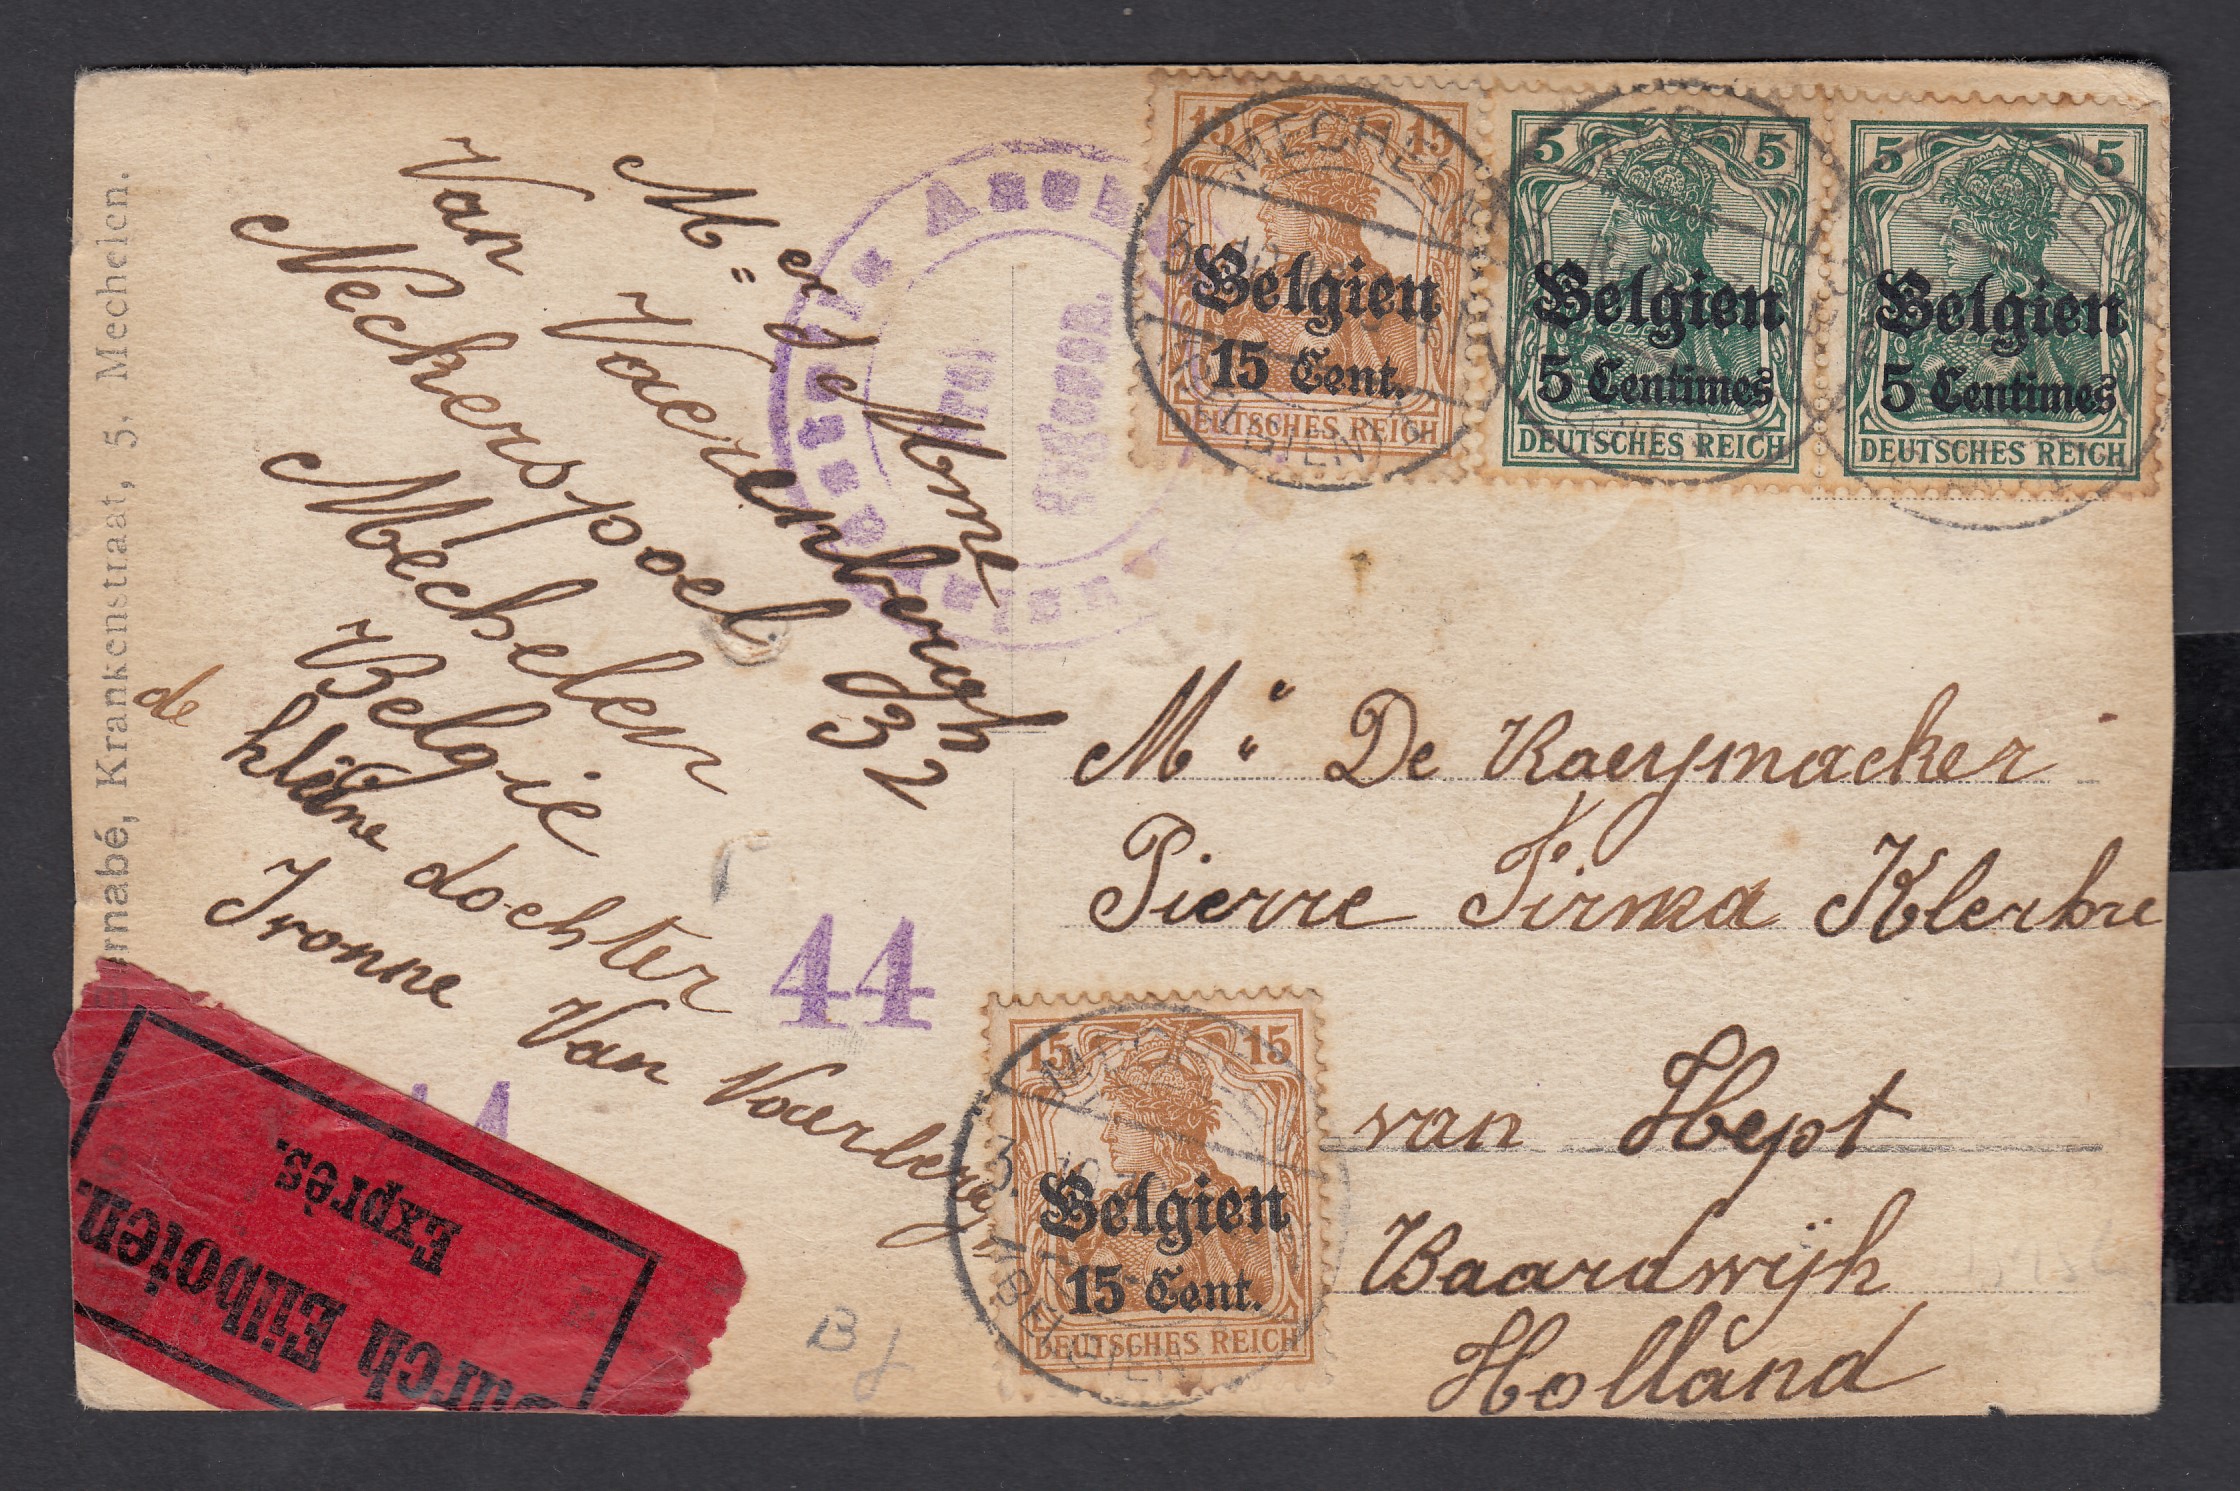 Mr et Mme
Van Vaerenbergh
Neckerspoel 32
Mechelen
Belgie
de kleine dochter
Ivonne Van Vaerberg
rnabé, Krankenstraat, 5, Mechelen.
44
Durch Eilboten.
Exprès.
15 15
Belgien
15 Cent.
DEUTSCHES REICH
5 5
Belgien
5 Centimes
DEUTSCHES REICH
5 5
Belgien
5 Centimes
DEUTSCHES REICH
MECHELN
(BELGIEN)
Mr De Raeymacker
Pierre Firma Klerbre
van Hept
Baardwijk
Holland
15 15
Belgien
15 Cent.
DEUTSCHES REICH
(BELGIEN
B